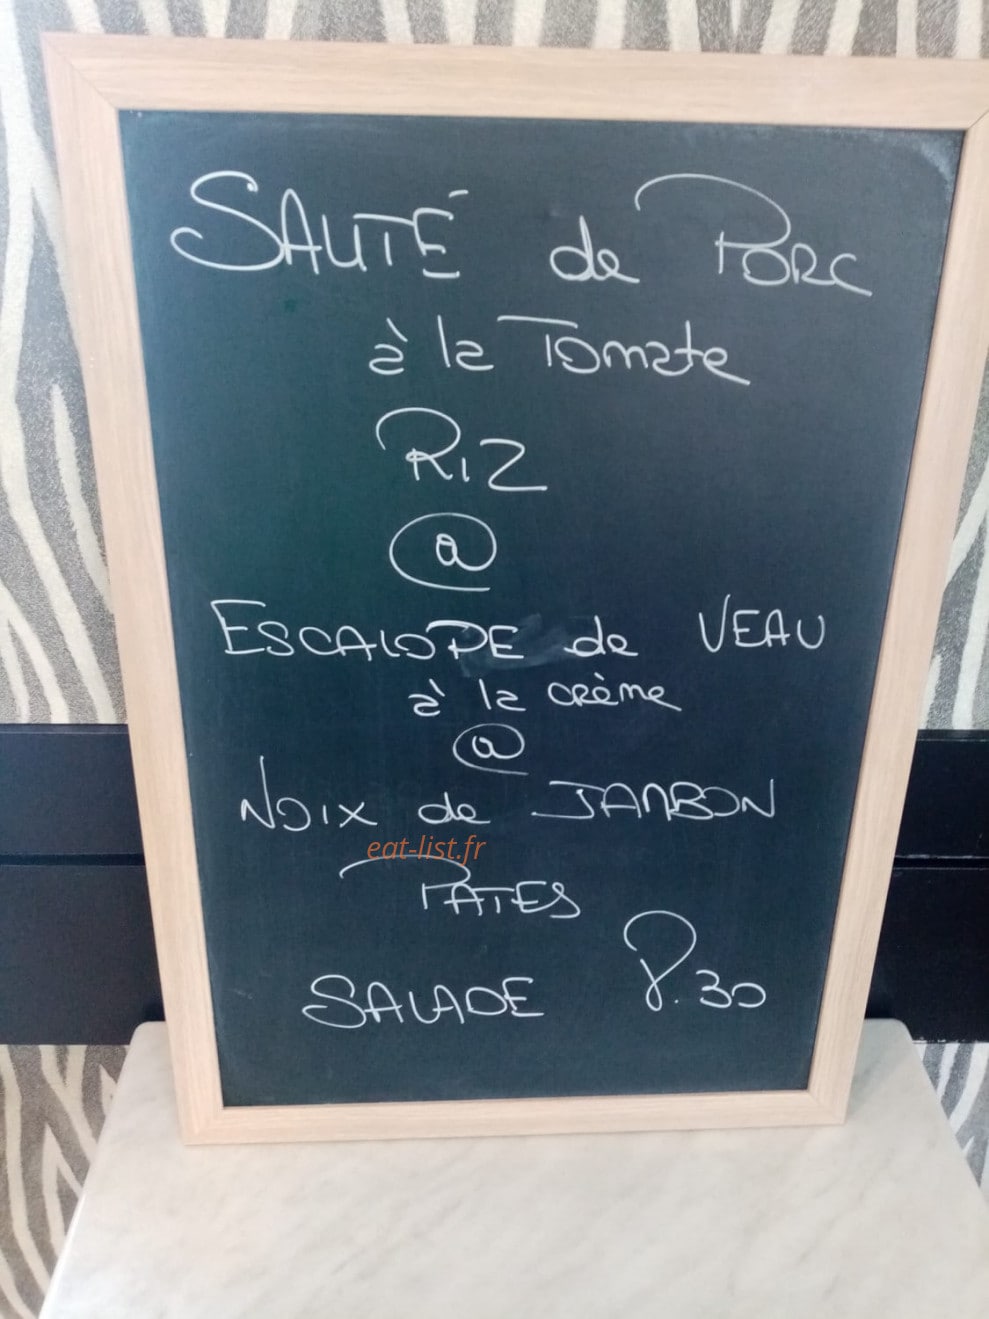 SAUTÉ de PORC
à la Tomate
RIZ
@
ESCALOPE de VEAU
à la crème
@
NOIX de JAMBON
eat-list.fr
PATES
SALADE 8.30